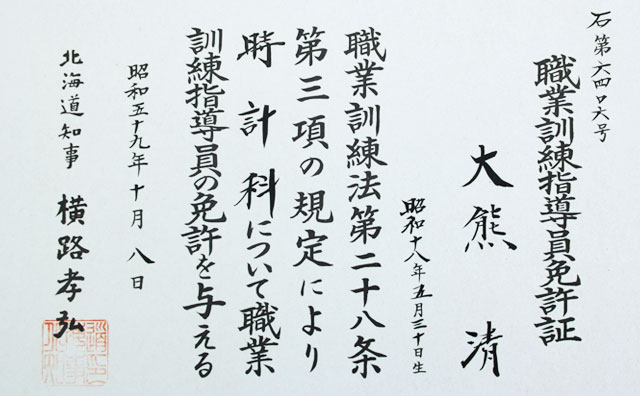 石第六四〇六号
職業訓練指導員免許証
大熊 清
昭和十八年五月三十日生
職業訓練法第二十八条
第三項の規定により
時計科について職業
訓練指導員の免許を与える
昭和五十九年十月八日
北海道知事 横路孝弘